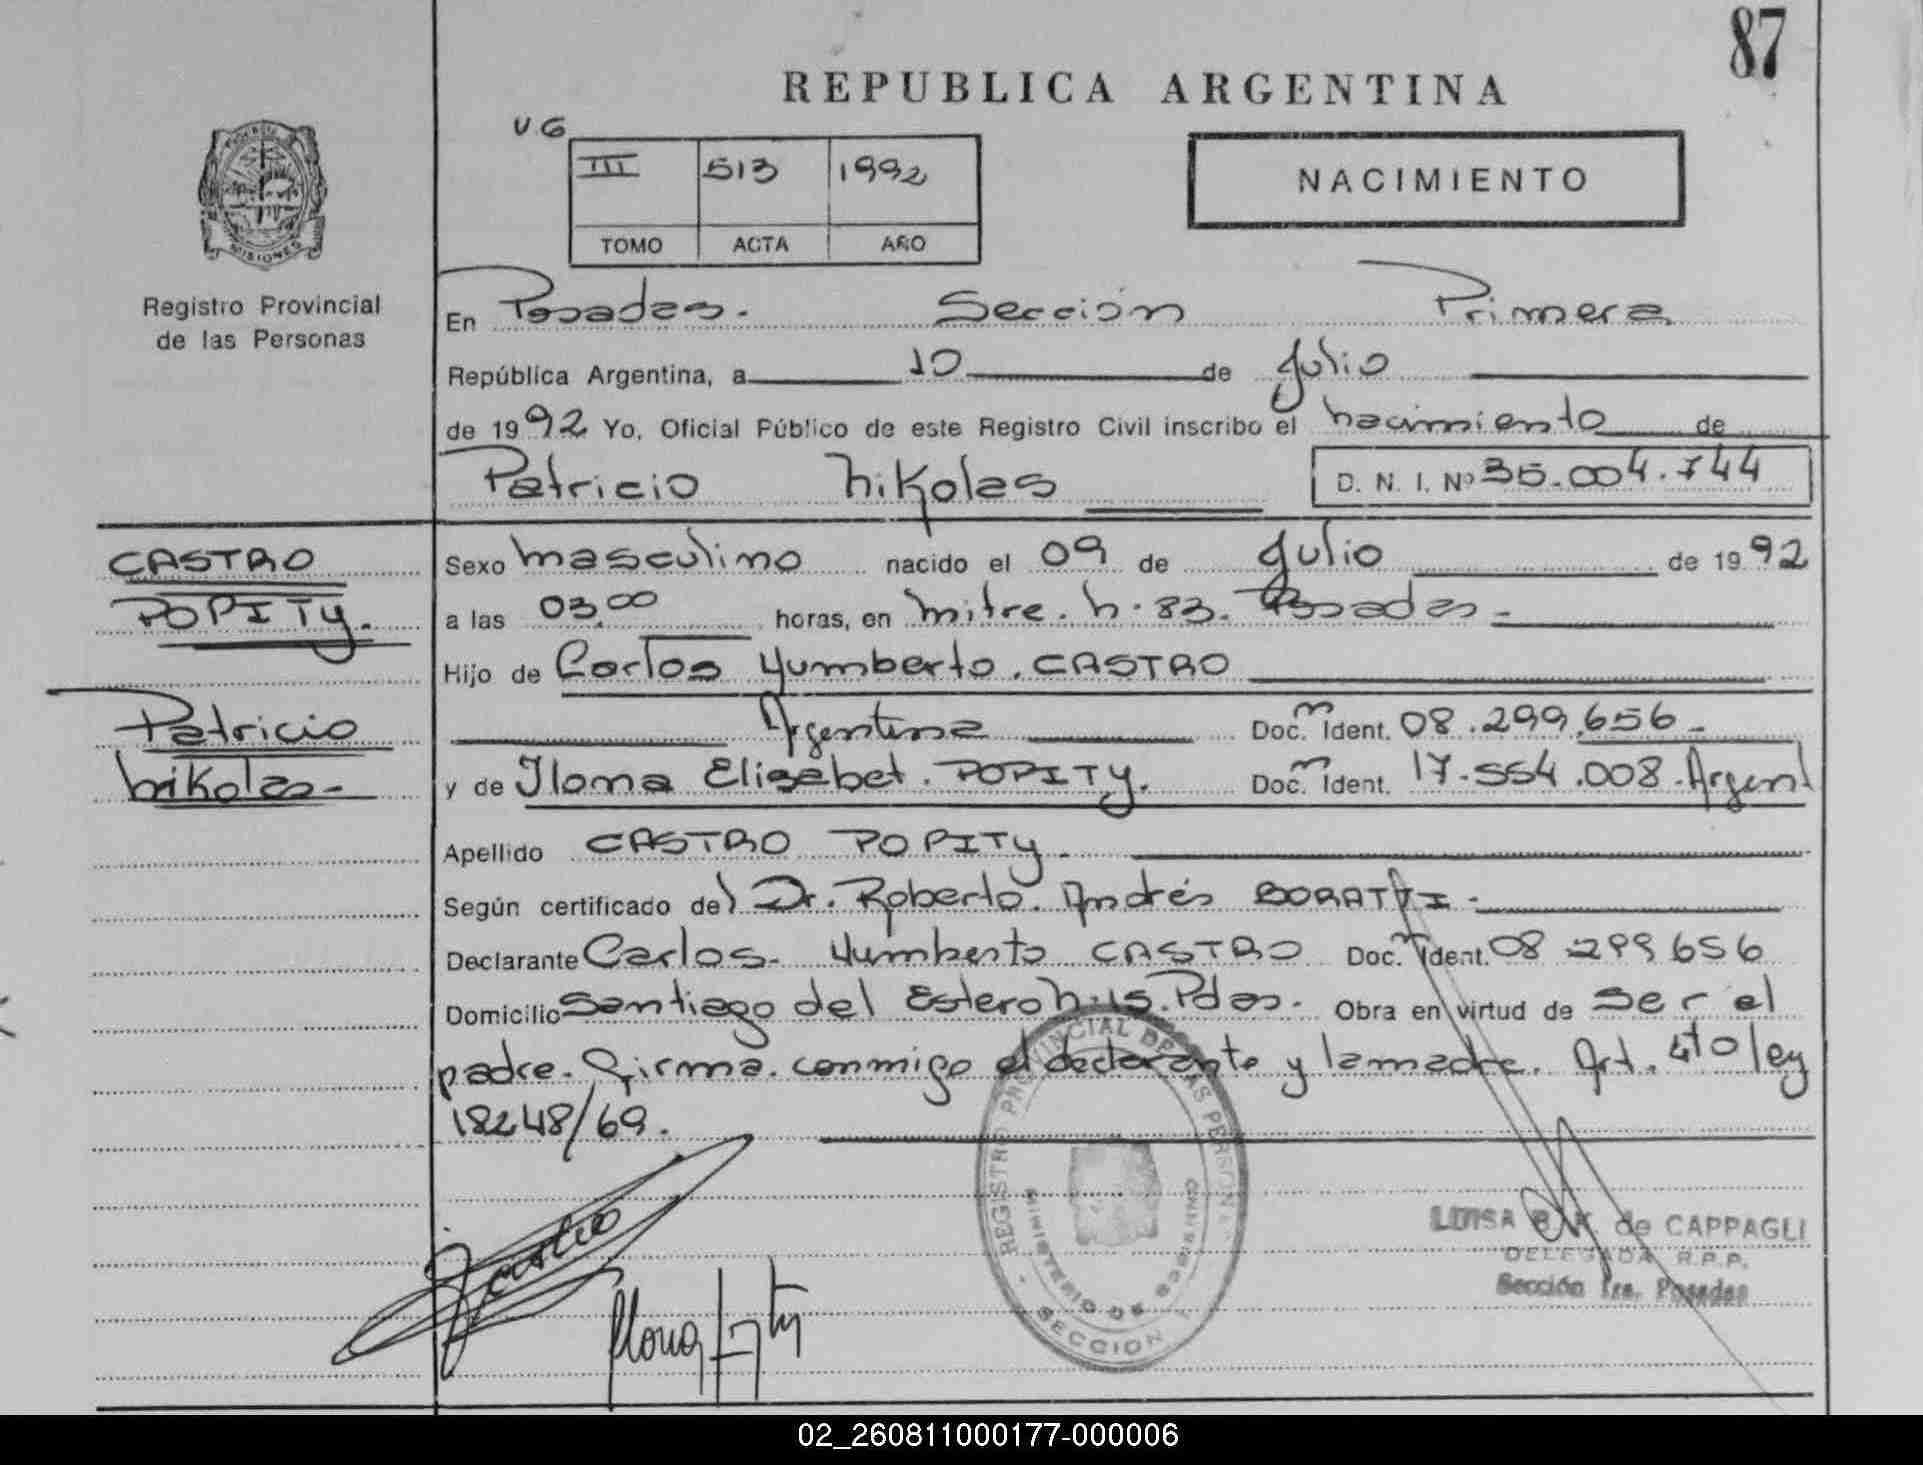 87
REPUBLICA ARGENTINA
V G
III 513 1992
TOMO ACTA AÑO
NACIMIENTO
MISIONES
Registro Provincial
de las Personas
En Posadas. Sección Primera
República Argentina, a 10 de Julio
de 1992 Yo, Oficial Público de este Registro Civil inscribo el nacimiento de
Patricio Nikolas D. N. I. Nº 35.004.744
CASTRO
POPITY.
Patricio
Nikolas-
Sexo masculino nacido el 09 de Julio de 1992
a las 03,00 horas, en Mitre. N. 83. Posadas-
Hijo de Carlos Humberto. CASTRO
Argentina Doc. Ident. 08.299.656-
y de Ilona Elisabet. POPITY. Doc. Ident. 17.554.008. Argent
Apellido CASTRO POPITY.
Según certificado del Dr. Roberto. Andrés
Declarante Carlos. Humberto CASTRO Doc. Ident. 08 299 656
Domicilio Santiago del Estero N. 15. Pdas. Obra en virtud de ser el
padre. Firma. conmigo el declarante y la madre. Art. 4to ley
18248/69.
REGISTRO PROVINCIAL DE LAS PERSONAS
MINISTERIO DE
SECCION 1
Castro
Ilona
LUISA B. K. de CAPPAGLI
DELEGADA R.P.P.
Sección 1ra. Posadas
02_260811000177-000006